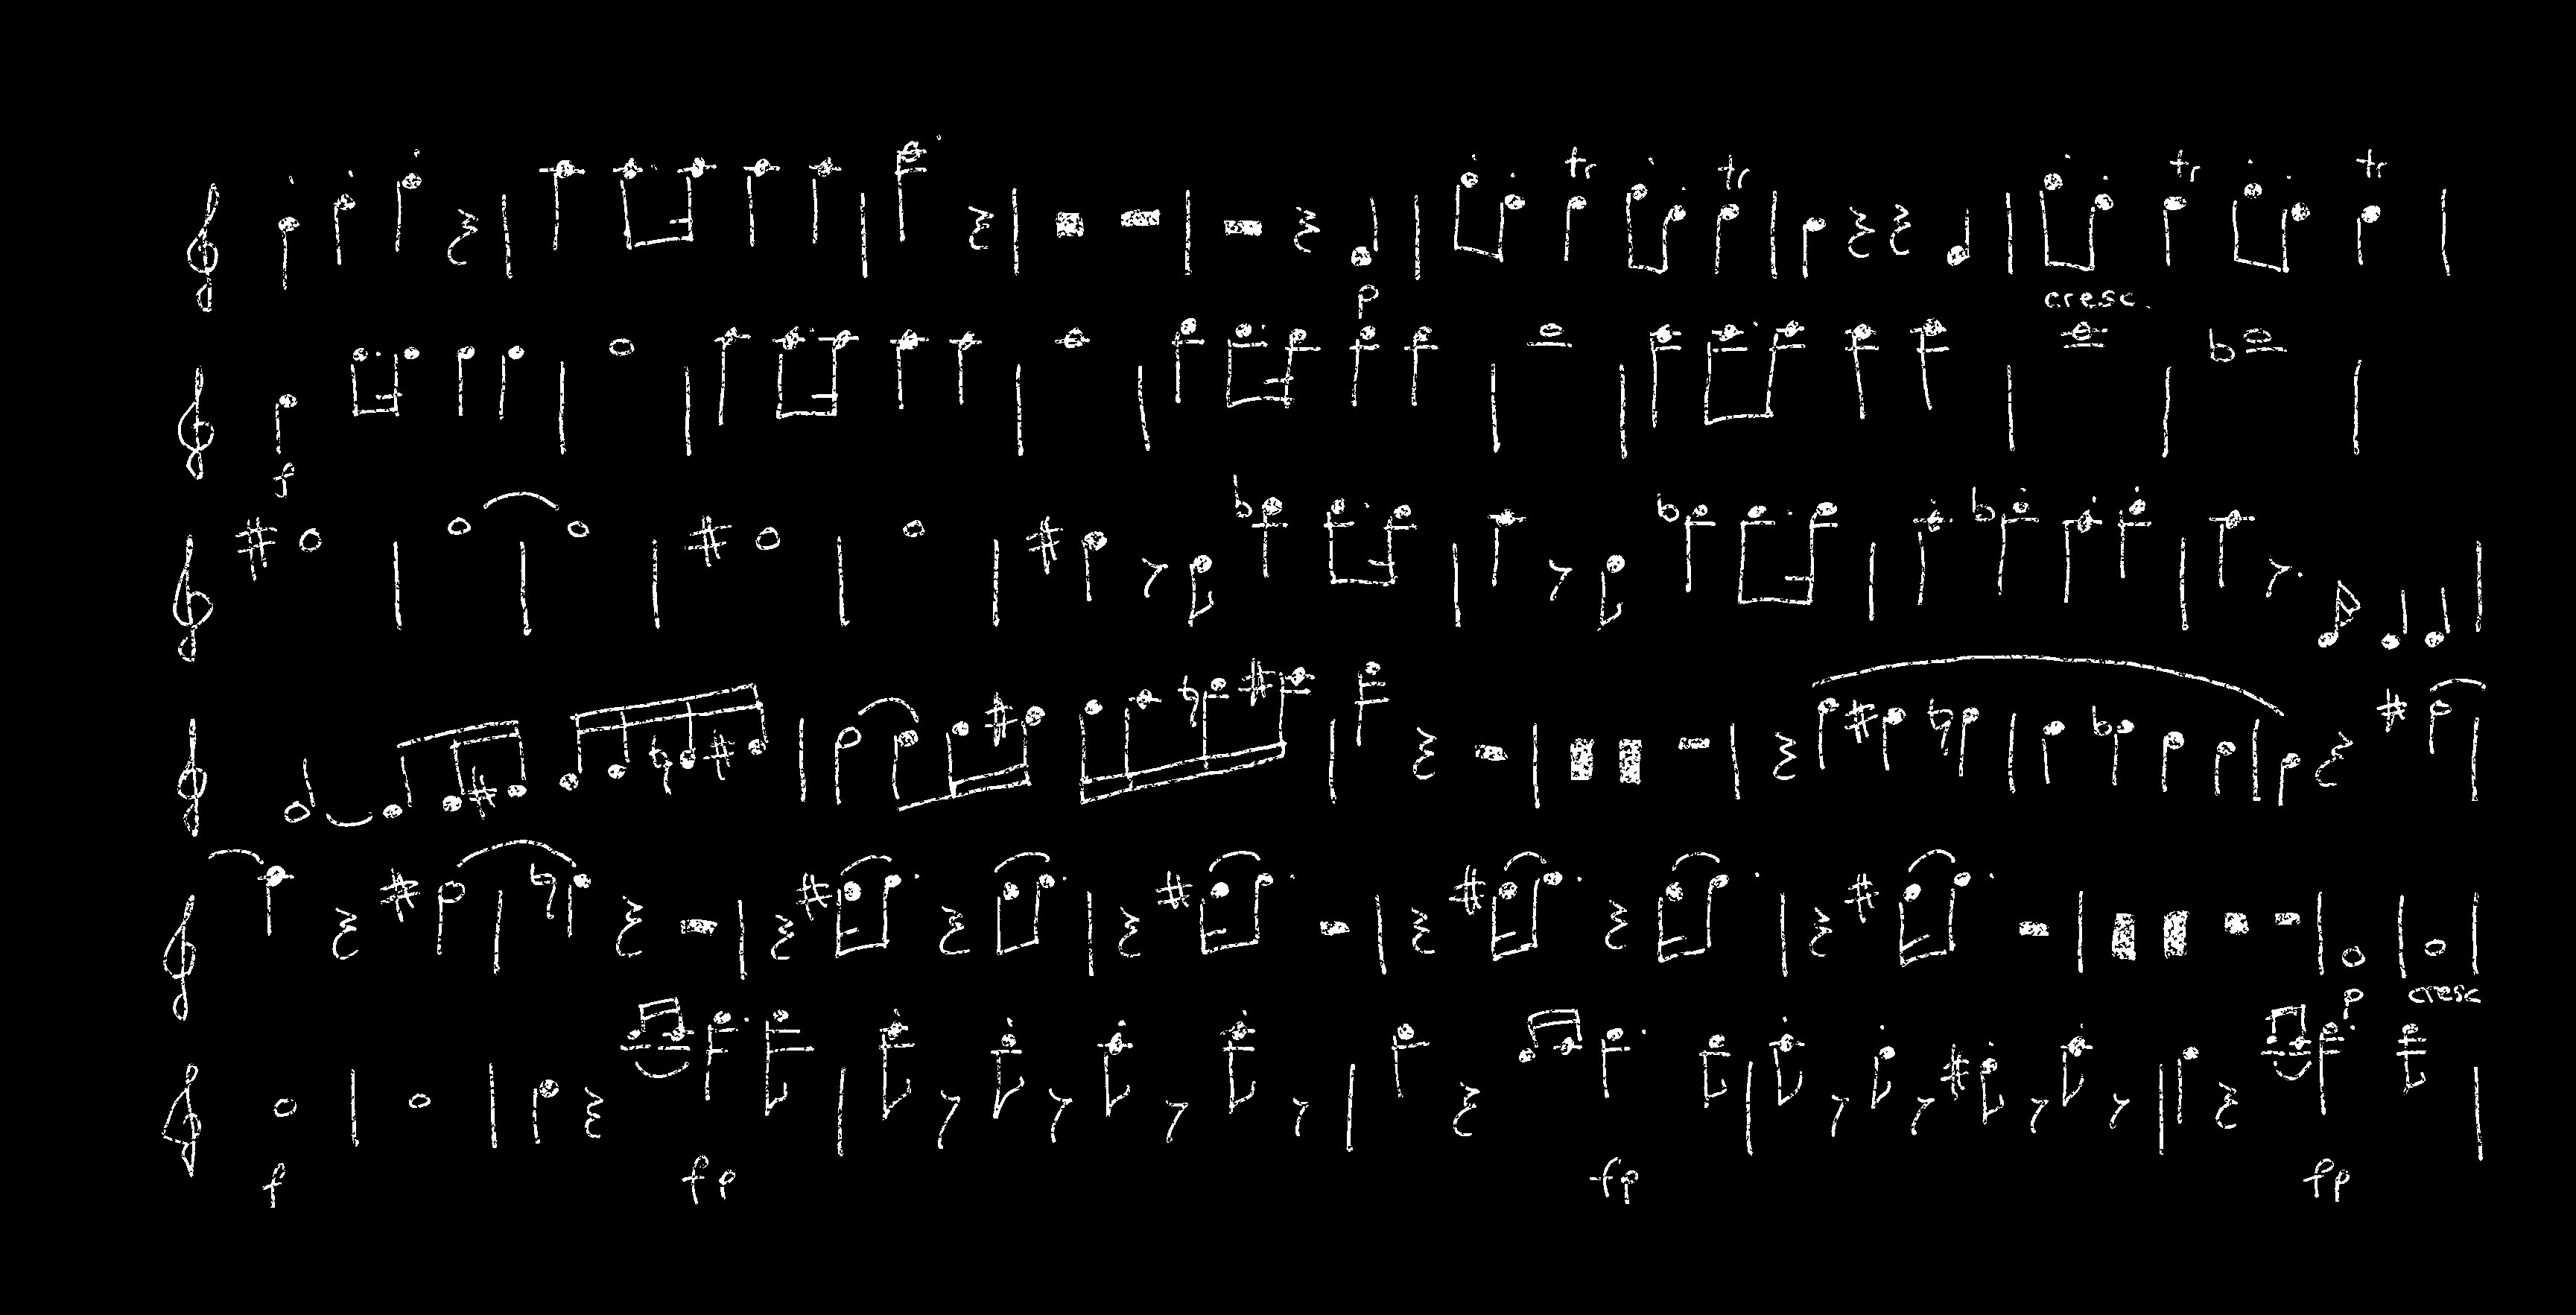 tr tr tr tr
p cresc.
f
p cresc
f fp fp fp